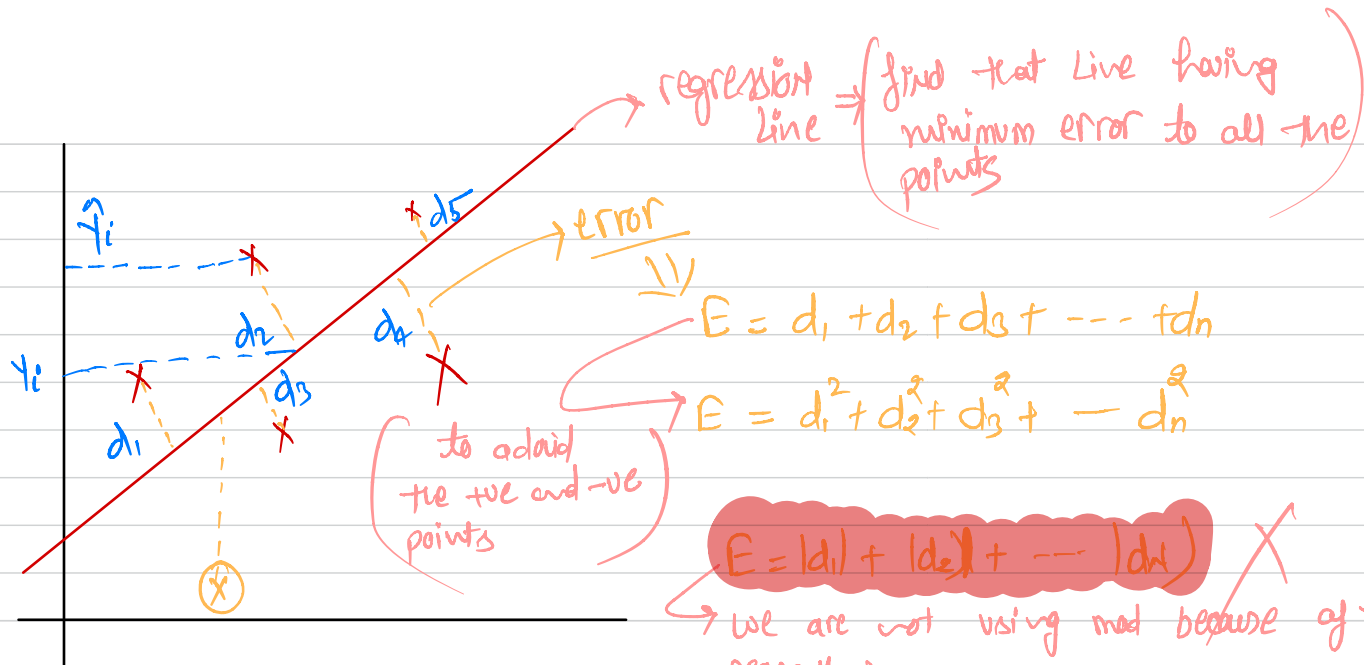 regression
Line ⇒
find that Line having
minimum error to all the
points
Ŷi
d5
error
d2
d4
E = d1 + d2 + d3 + ---- + dn
Yi
d3
E = d1² + d2² + d3² + — dn²
d1
to
the +ve and -ve
points
E = |d1| + |d2| + --- |dn|
X
we are not using mod because of